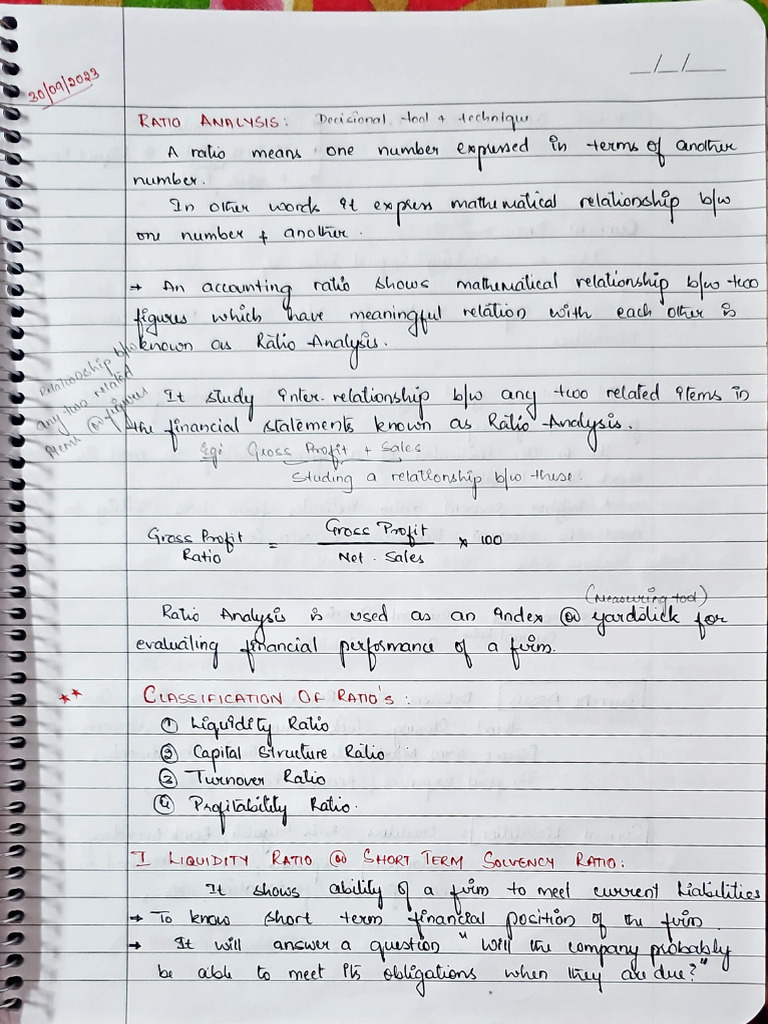 30/09/2023
_/_/__
RATIO ANALYSIS: Decisional tool + technique
A ratio means one number expressed in terms of another
number.
In other words it express mathematical relationship b/w
one number + another.
→ An accounting ratio shows mathematical relationship b/w two
figures which have meaningful relation with each other is
known as Ratio Analysis.
Relationship b/w
any two related
items @ figures
It study inter-relationship b/w any two related items in
the financial statements known as Ratio Analysis.
Eg: Gross Profit + Sales
Studing a relationship b/w these.
Gross Profit Ratio = Gross Profit / Net. Sales × 100
(Measuring tool)
Ratio Analysis is used as an index @ yardstick for
evaluating financial performance of a firm.
** CLASSIFICATION OF RATIO'S:
① Liquidity Ratio
② Capital Structure Ratio
③ Turnover Ratio
④ Profitability Ratio.
I LIQUIDITY RATIO @ SHORT TERM SOLVENCY RATIO:
It shows ability of a firm to meet current liabilities
→ To know short term financial position of the firm.
→ It will answer a question "will the company probably
be able to meet its obligations when they are due?"